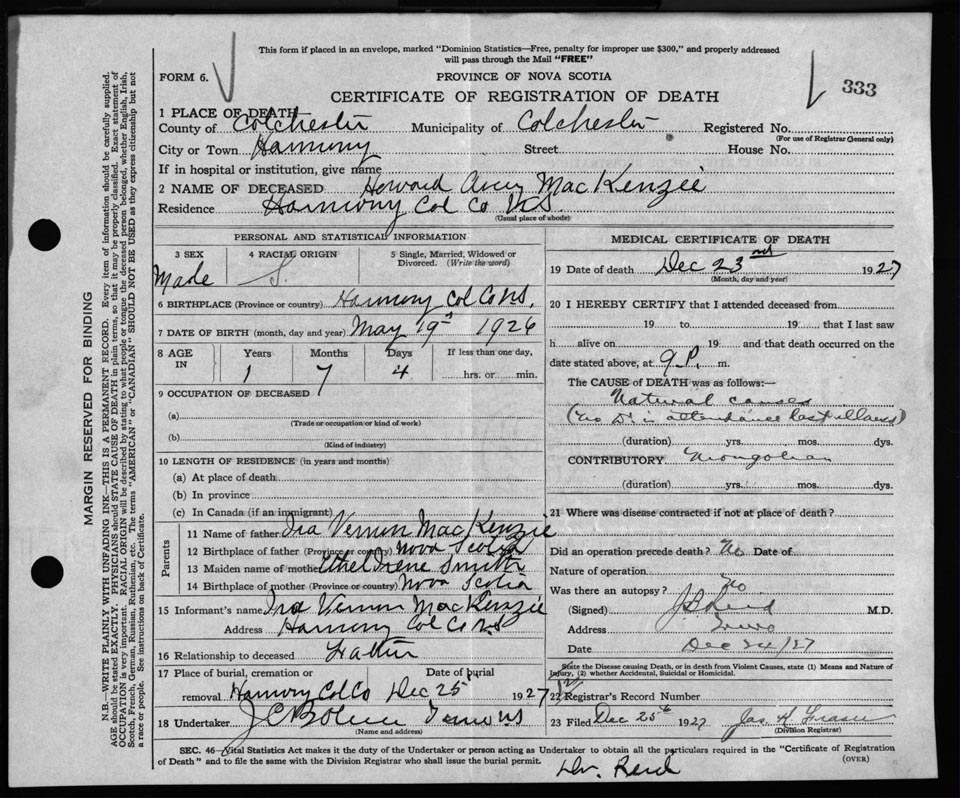 This form if placed in an envelope, marked "Dominion Statistics—Free, penalty for improper use $300," and properly addressed
will pass through the Mail "FREE"
FORM 6.
PROVINCE OF NOVA SCOTIA
333
CERTIFICATE OF REGISTRATION OF DEATH
1 PLACE OF DEATH
County of Colchester Municipality of Colchester Registered No.
(For use of Registrar General only)
City or Town Harmony Street House No.
If in hospital or institution, give name
2 NAME OF DECEASED Howard Avery MacKenzie
Residence Harmony Col Co N.S.
(Usual place of abode)
PERSONAL AND STATISTICAL INFORMATION
3 SEX 4 RACIAL ORIGIN 5 Single, Married, Widowed or Divorced. (Write the word)
Male S
6 BIRTHPLACE (Province or country) Harmony Col Co NS.
7 DATE OF BIRTH (month, day and year) May 19th 1926
8 AGE IN Years Months Days If less than one day,
1 7 4 hrs. or min.
9 OCCUPATION OF DECEASED
(a)
(Trade or occupation or kind of work)
(b)
(Kind of industry)
10 LENGTH OF RESIDENCE (in years and months)
(a) At place of death
(b) In province
(c) In Canada (if an immigrant)
Parents
11 Name of father Ira Vernon MacKenzie
12 Birthplace of father (Province or country) Nova Scotia
13 Maiden name of mother Ethel Irene Smith
14 Birthplace of mother (Province or country) Nova Scotia
15 Informant's name Ira Vernon MacKenzie
Address Harmony Col Co N.S.
16 Relationship to deceased Father
17 Place of burial, cremation or Date of burial
removal Harmony Col Co Dec 25 1927
18 Undertaker
(Name and address)
MEDICAL CERTIFICATE OF DEATH
19 Date of death Dec 23rd 1927
(Month, day and year)
20 I HEREBY CERTIFY that I attended deceased from
19 to 19 that I last saw
h alive on 19 and that death occurred on the
date stated above, at 9 P. m.
The CAUSE of DEATH was as follows:—
Natural causes
(No Dr in attendance last illness)
(duration) yrs. mos. dys.
CONTRIBUTORY Mongolian
(duration) yrs. mos. dys.
21 Where was disease contracted if not at place of death?
Did an operation precede death? No Date of
Nature of operation
Was there an autopsy? No
(Signed) Reid M.D.
Address Truro
Date Dec 24/27
State the Disease causing Death, or in death from Violent Causes, state (1) Means and Nature of
Injury, (2) whether Accidental, Suicidal or Homicidal.
22 Registrar's Record Number
23 Filed Dec 25th 1927 Jas. Fraser
(Division Registrar)
SEC. 46—Vital Statistics Act makes it the duty of the Undertaker or person acting as Undertaker to obtain all the particulars required in the "Certificate of Registration
of Death" and to file the same with the Division Registrar who shall issue the burial permit.
(OVER)
Dr. Reid
MARGIN RESERVED FOR BINDING
N.B.—WRITE PLAINLY WITH UNFADING INK—THIS IS A PERMANENT RECORD. Every item of information should be carefully supplied.
AGE should be stated EXACTLY. PHYSICIANS should STATE CAUSE OF DEATH in plain terms, so that it may be properly classified. Exact statement of
OCCUPATION is very important. RACIAL ORIGIN will be described by stating to what people or tongue the deceased person belonged, whether English, Irish,
Scotch, French, German, Russian, Ruthenian, etc. The terms "AMERICAN" or "CANADIAN" SHOULD NOT BE USED as they express citizenship but not
a race or people. See instructions on back of Certificate.